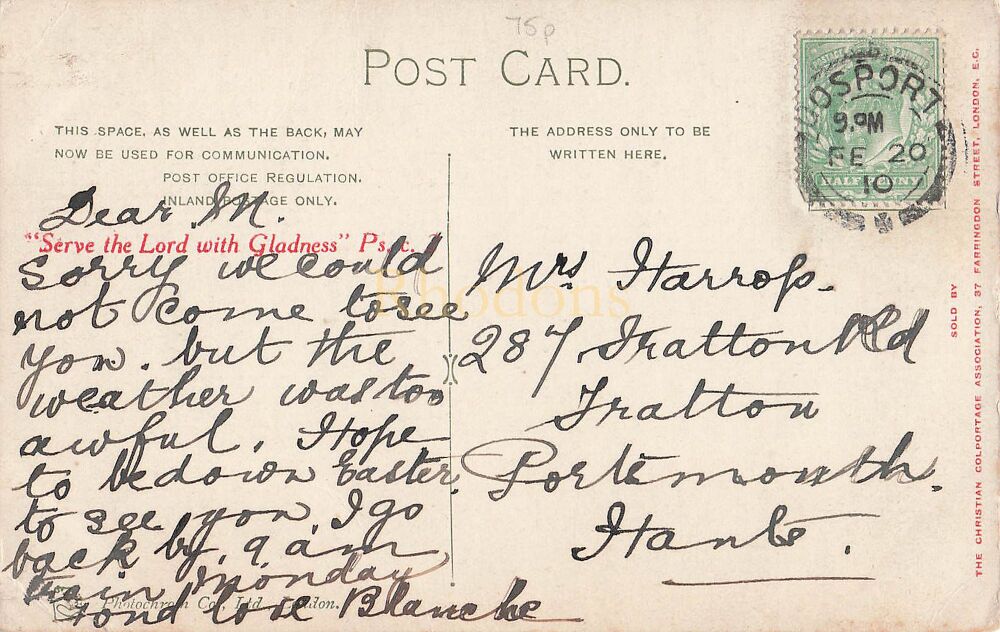 75p
POST CARD.
THIS SPACE, AS WELL AS THE BACK, MAY
NOW BE USED FOR COMMUNICATION.
POST OFFICE REGULATION.
INLAND POSTAGE ONLY.
"Serve the Lord with Gladness" Ps. c.
Dear M.
Sorry we could
not come to see
you. but the
weather was too
awful. Hope
to be down Easter.
to see you. I go
back by. 9. a m
train Monday
fond love Blanche
Photochrom Co., Ltd. London.
THE ADDRESS ONLY TO BE
WRITTEN HERE.
Mrs Harrop.
287 Fratton Rd
Fratton
Portsmouth.
Hants.
GOSPORT
9. PM
FE 20
10
HALFPENNY
Rhodons
SOLD BY
THE CHRISTIAN COLPORTAGE ASSOCIATION, 37 FARRINGDON STREET, LONDON, E.C.